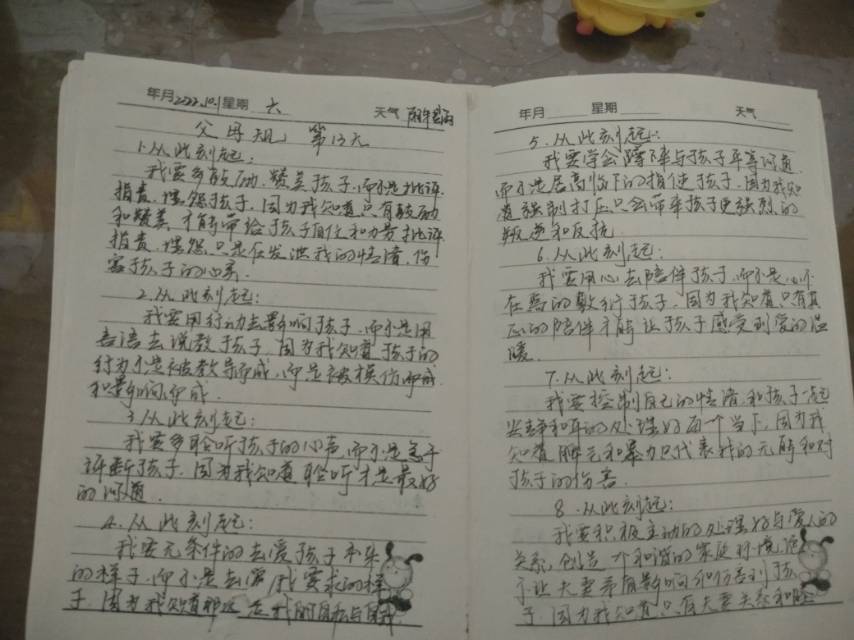 年月2022.10.1星期 六 天气
父母规 第13天
1.从此刻起:
我要多鼓励、赞美孩子,而不是批评
指责、埋怨孩子,因为我知道只有鼓励
和赞美,才能带给孩子自信和力量,批评
指责、埋怨,只是在发泄我的情绪,伤
害孩子的心灵。
2.从此刻起:
我要用行动去影响孩子,而不是用
言语去说教孩子,因为我知道孩子的
行为不是被教导而成,而是被模仿而成
和影响而成。
3.从此刻起:
我要多聆听孩子的心声,而不是急于
评断孩子,因为我知道聆听才是最好
的沟通。
4.从此刻起:
我要无条件的去爱孩子本来
的样子,而不是去爱我要求的样
子,因为我知道那
年月 星期 天气
5.从此刻起:
我要学会蹲下来与孩子平等沟通
而不是居高临下的指使孩子,因为我知
道强制打压只会带来孩子更强烈的
叛逆和反抗
6.从此刻起:
我要用心去陪伴孩子,而不是心不
在焉的敷衍孩子,因为我知道只有真
正的陪伴才能让孩子感受到爱的温
暖。
7.从此刻起:
我要控制自己的情绪,和孩子一起
安静和平的处理好每一个当下,因为我
知道脾气和暴力只代表我的无能和对
孩子的伤害。
8.从此刻起:
我要积极主动的处理好与爱人的
关系,创造一个和谐的家庭环境,绝
不让夫妻矛盾影响和伤害到孩
子,因为我知道只有夫妻关系和